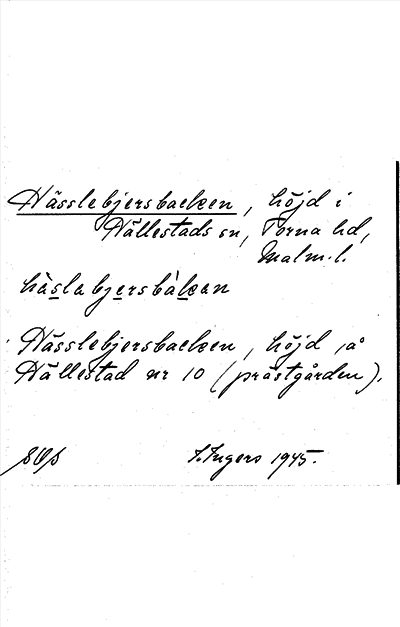 Hässlebjersbacken, höjd i
Hällestads sn, Torna hd,
Malm. l.
hàslabjersbàkan
Hässlebjersbacken, höjd på
Hällestad nr 10 (prästgården).
I. Ingers 1945.